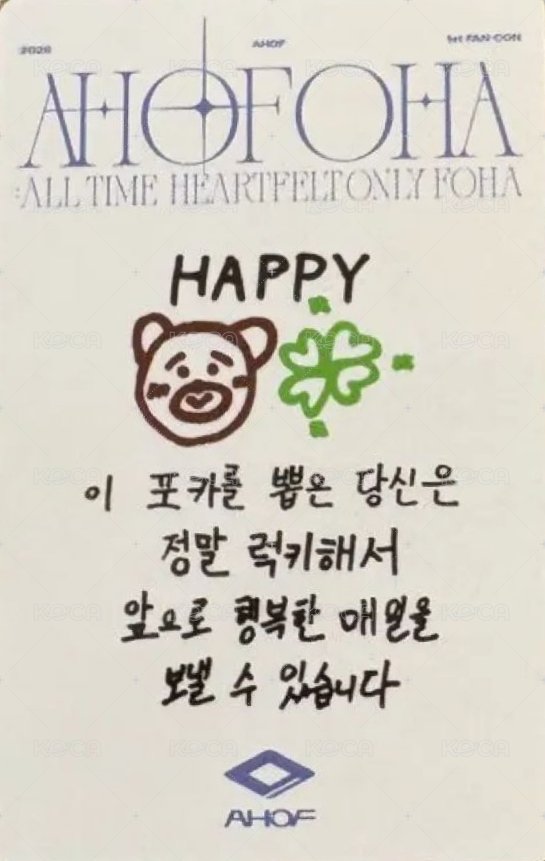 2026 AHOF 1st FAN-CON
AHOFOHA
:ALL TIME HEARTFELT ONLY FOHA
HAPPY
이 포카를 뽑은 당신은
정말 럭키해서
앞으로 행복한 매일을
보낼 수 있습니다
AHOF
KOCA